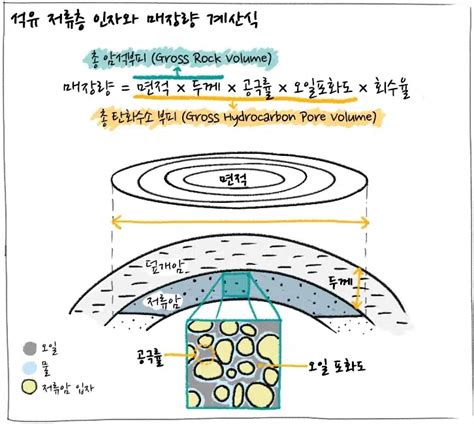 석유 저류층 인자와 매장량 계산식
총 암석부피 (Gross Rock Volume)
매장량 = 면적 × 두께 × 공극률 × 오일포화도 × 회수율
총 탄화수소 부피 (Gross Hydrocarbon Pore Volume)
면적
덮개암
저류암
두께
공극률
오일 포화도
오일
물
저류암 입자